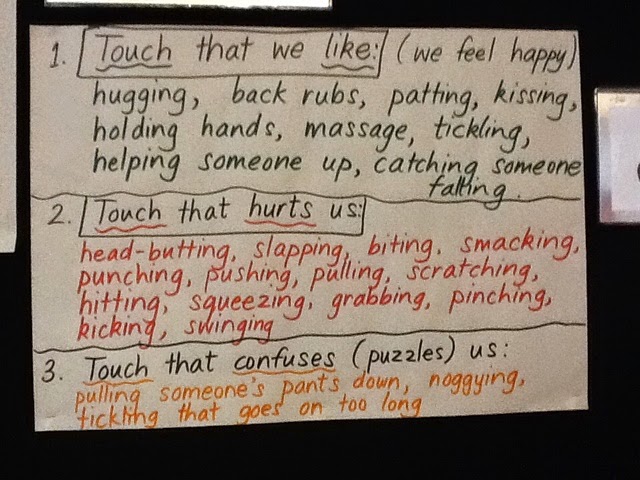 1. Touch that we like: (we feel happy)
hugging, back rubs, patting, kissing,
holding hands, massage, tickling,
helping someone up, catching someone
falling.
2. Touch that hurts us:
head-butting, slapping, biting, smacking,
punching, pushing, pulling, scratching,
hitting, squeezing, grabbing, pinching,
kicking, swinging
3. Touch that confuses (puzzles) us:
pulling someone's pants down, noggying,
tickling that goes on too long